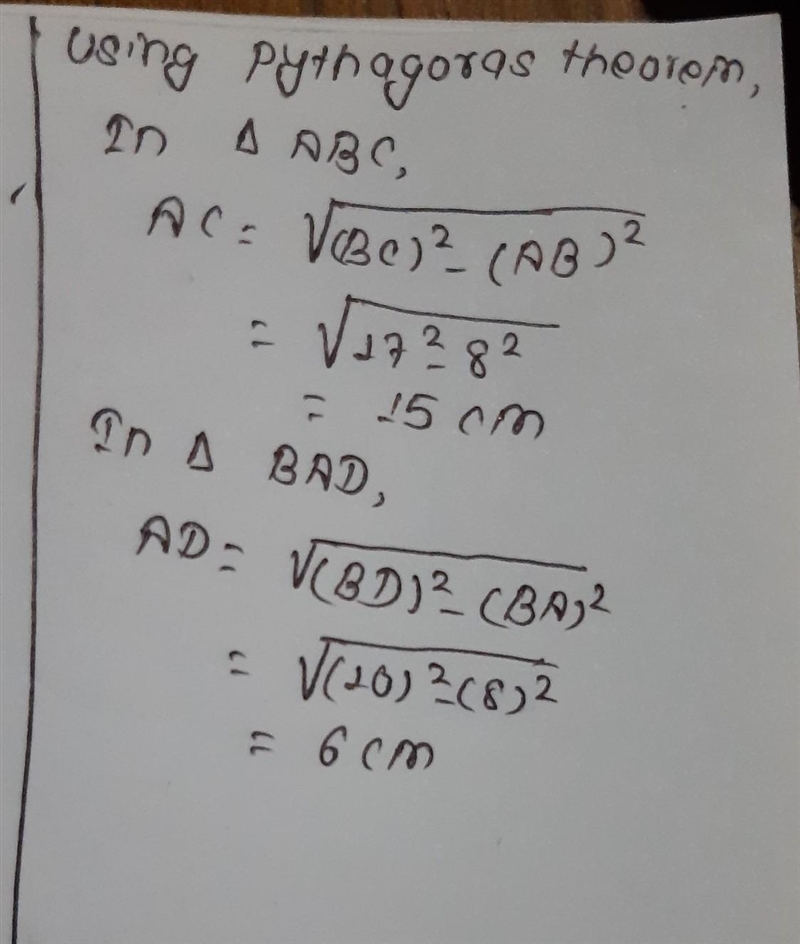 Using Pythagoras theorem,
In Δ ABC,
AC = √(BC)² - (AB)²
= √17² - 8²
= 15 cm
In Δ BAD,
AD = √(BD)² - (BA)²
= √(10)² - (8)²
= 6 cm